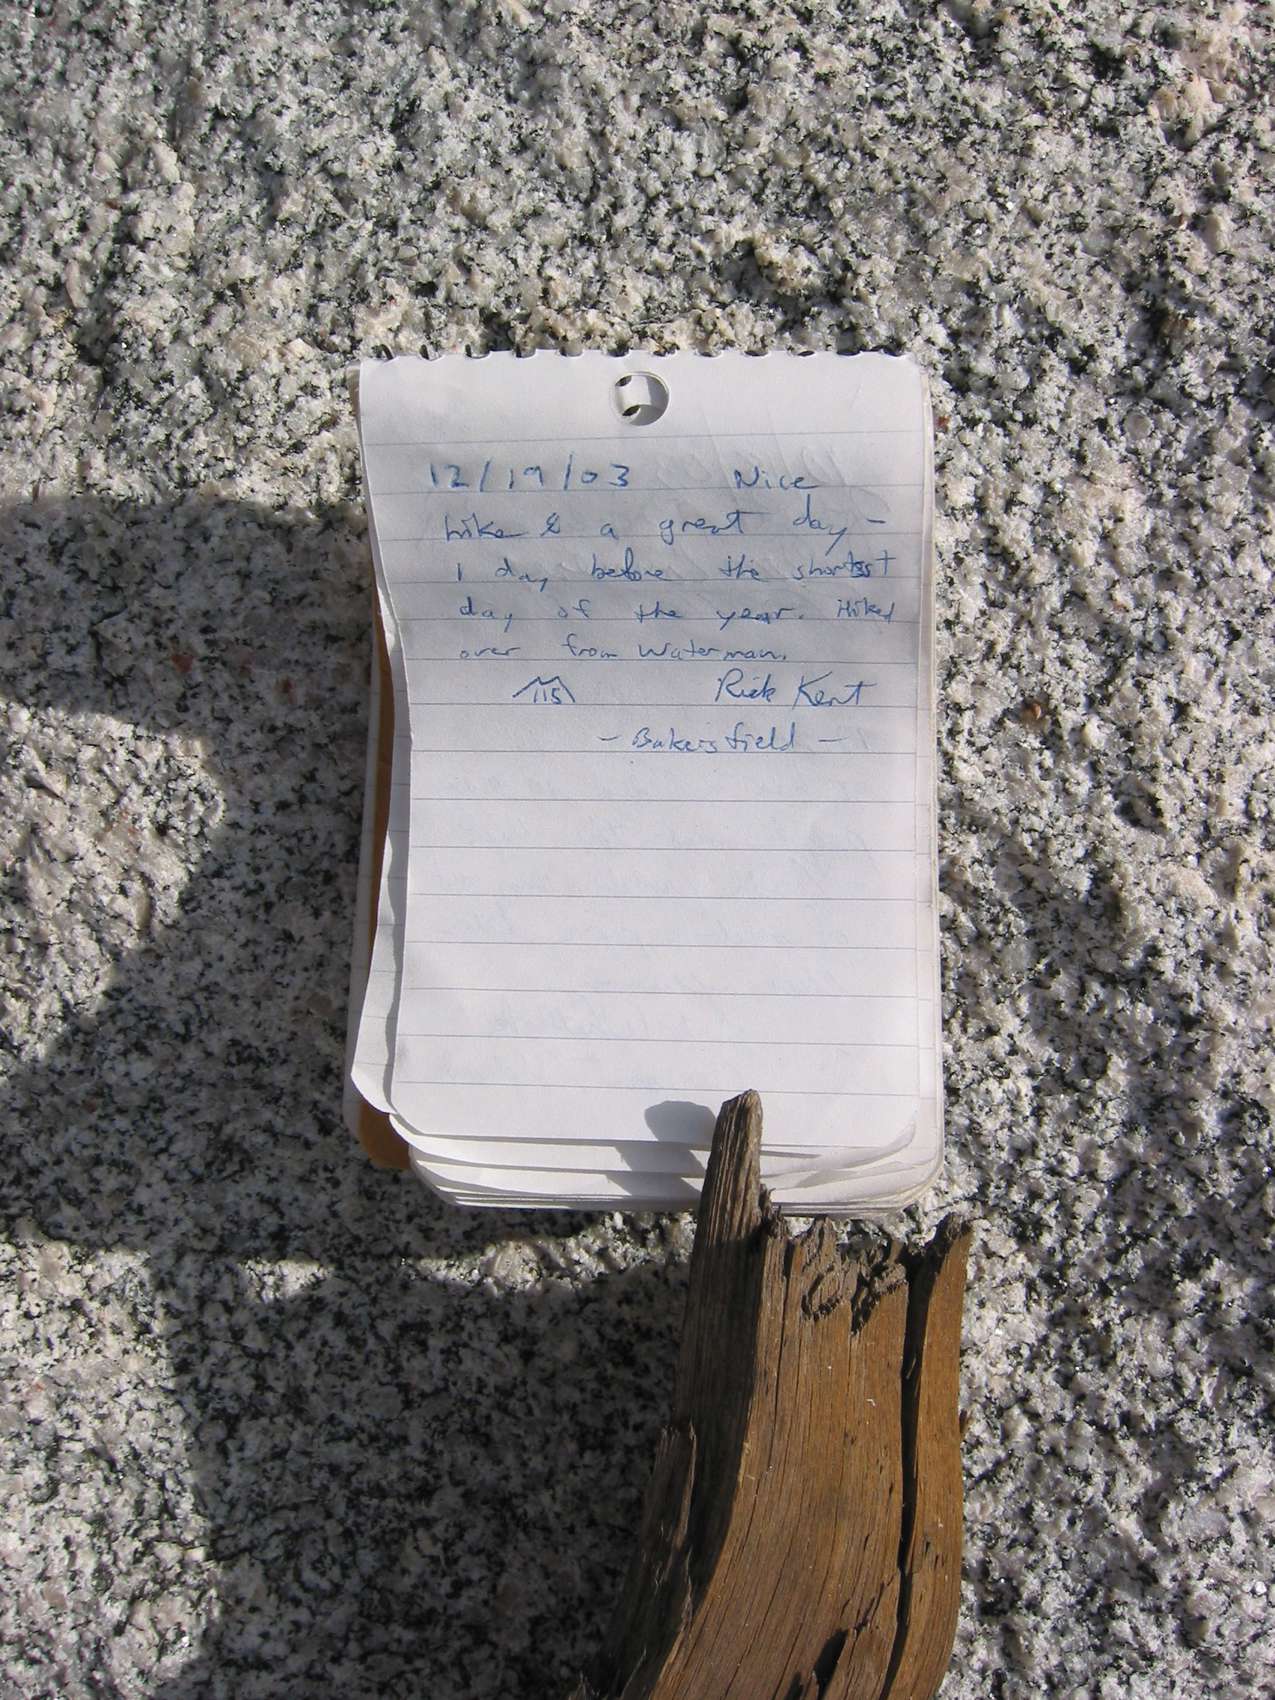 12/19/03 Nice
hike & a great day -
1 day before the shortest
day of the year. Hiked
over from Waterman.
115 Rick Kent
- Bakersfield -